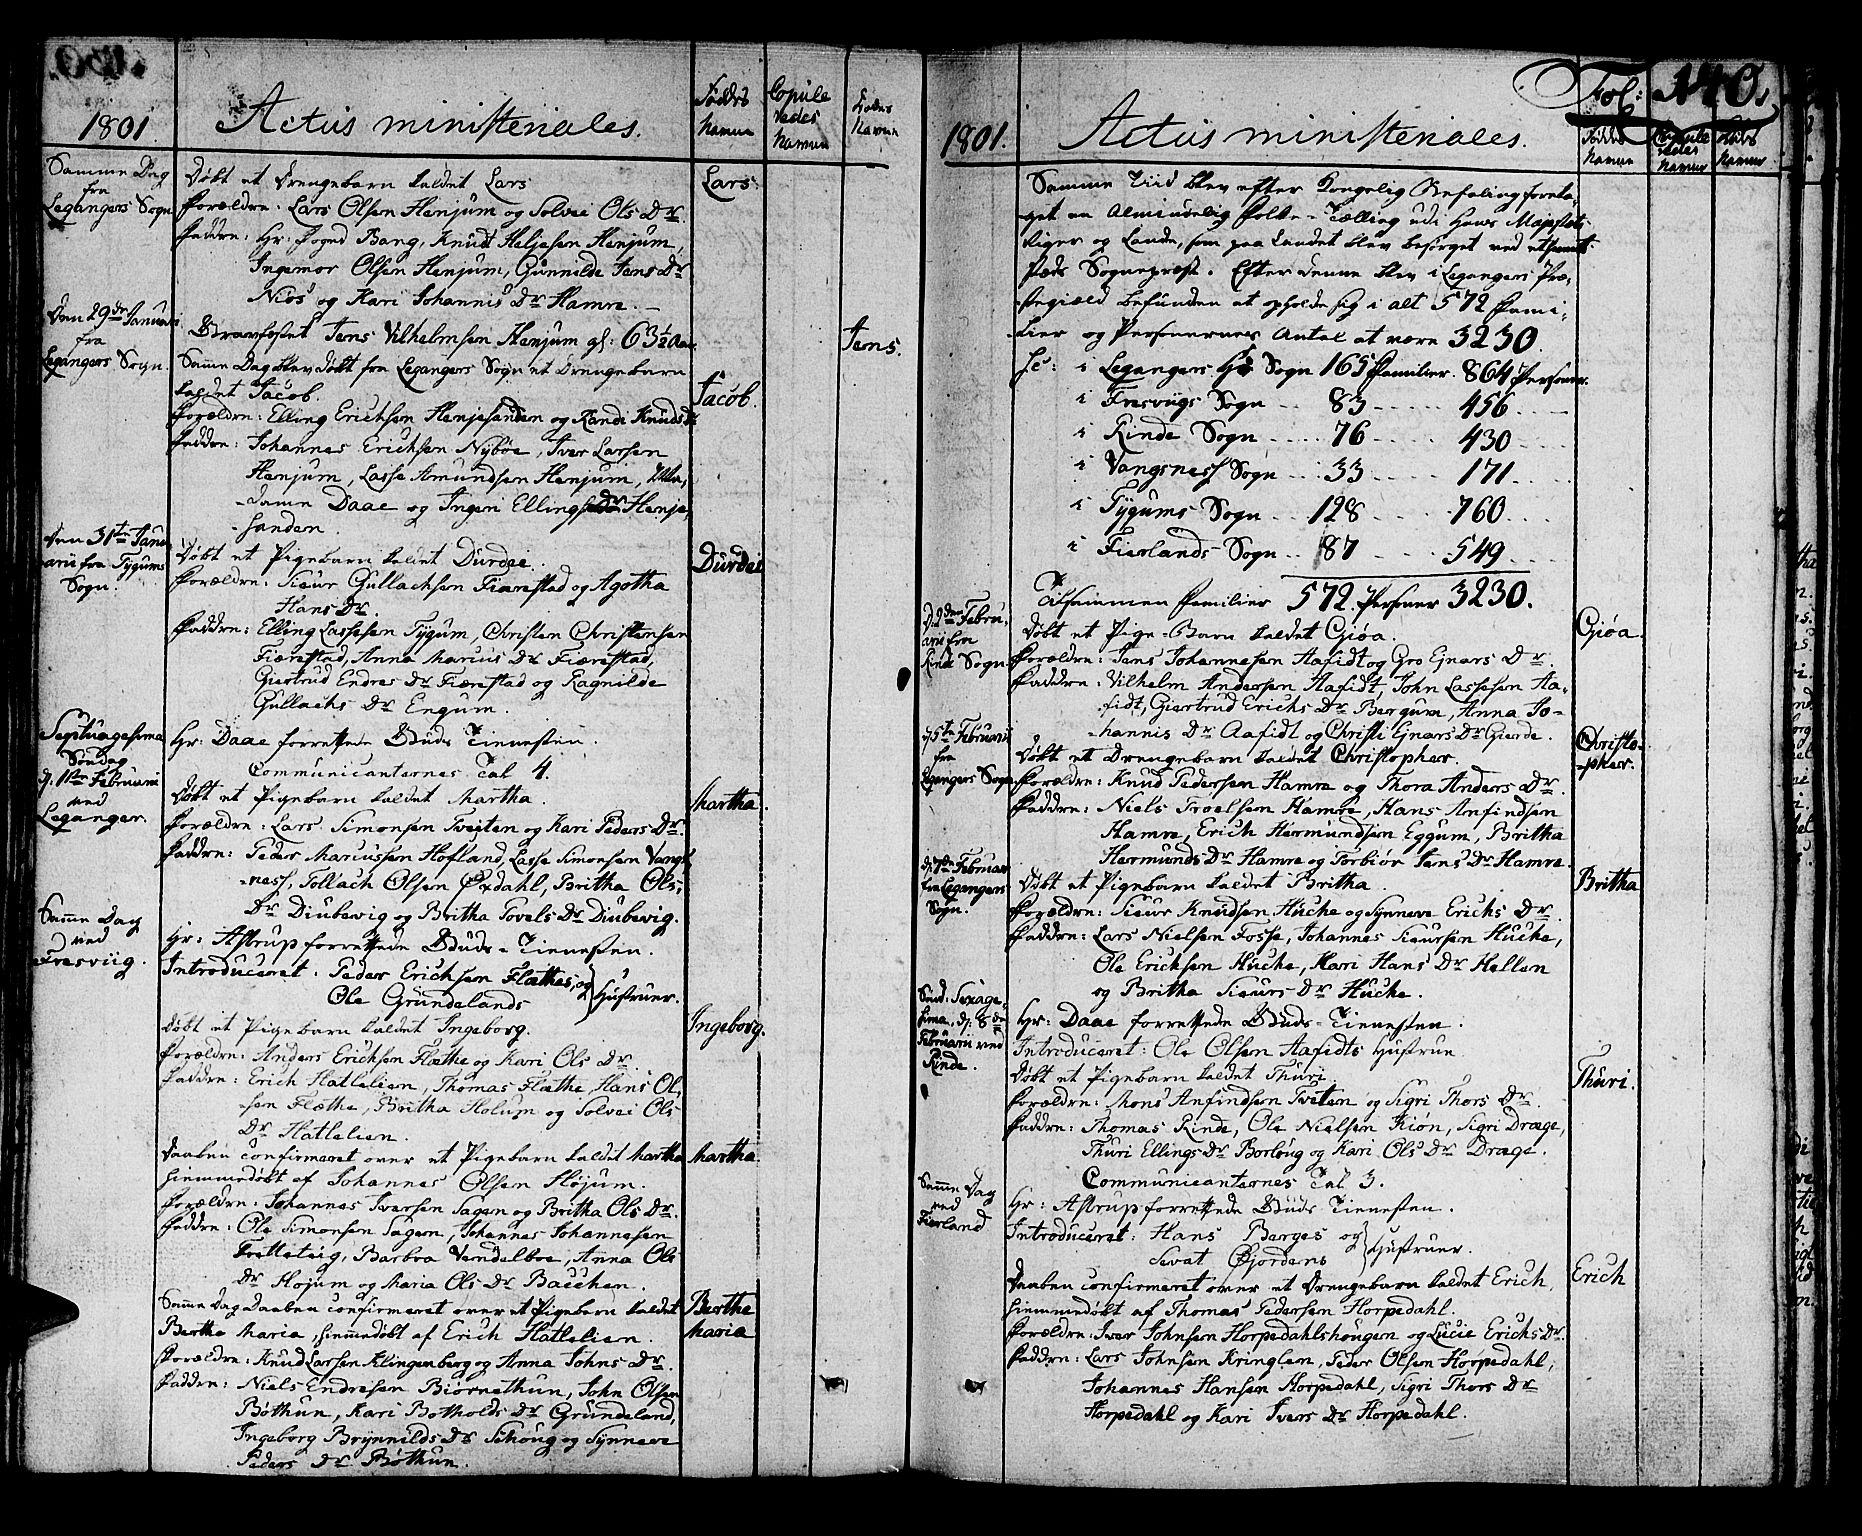 1801. Actus ministeriales.
Føddes Namne
Copule redes Namne
Dødes Namne
Samme Dag
fra
Legangers Sogn
Døbt et Drengebarn kaldet Lars
Lars
Forældre: Lars Olsen Henjum og Solvei Ols Dr.
Faddre: Hr: Fogned Bang, Knud Heljesen Henjum,
Ingemor Olsen Henjum, Gunnilde Jens Dr
Nios og Kari Johannis Dr Hamre.
Den 29de Januarii
fra
Legangers Sogn.
Jens Vilhelmsen Henjum gl: 63½ Aar.
Jens.
Samme Dag blev døbt fra Legangers Sogn et Drengebarn
kaldet Jacob.
Jacob.
Forældre: Elling Erichsen Henjesanden og Randi Knuds Dr
Faddre: Johannes Erichsen Nybøe, Iver Larsen
Henjum, Lasse Amundsen Henjum, Ma-
dame Daae og Ingeri Ellings Dr Henje-
sanden.
Den 31te Janu-
arii fra Tygums
Sogn.
Døbt et Pigebarn kaldet Durdei.
Durdei
Forældre: Siur Gullachsen Fiærestad og Agotha
Hans Dr.
Faddre: Elling Lassesen Tygum, Christen Christensen
Fiærestad, Anna Marcus Dr Fiærestad,
Giertrud Endres Dr Fiærestad og Ragnilde
Gullachs Dr Engum.
Septuagesima
Søndag
d. 1ste Februarii
ved
Leganger.
Hr: Daae forrettede Guds Tienesten.
Communicanternes Tal 4.
Døbt et Pigebarn kaldet Martha.
Martha.
Forældre: Lars Simonsen Tveiten og Kari Peders Dr.
Faddre: Peder Marcussen Hofland, Lasse Simonsen Vangs-
ness, Tollach Olsen Øxdahl, Britha Ols
Dr Diubevig og Britha Povels Dr Diubevig.
Samme Dag
ved
Fresviig.
Hr: Astrup forrettede Guds-Tienesten.
Introduceret: Peder Erichsen Flæthes, og
Ole Grundelands
Hustruer.
Døbt et Pigebarn kaldet Ingeborg.
Ingeborg.
Forældre: Anders Erichsen Flæthe og Kari Ols Dr.
Faddre: Erich Hatlelien, Thomas Flæthe, Hans Ol-
sen Flæthe, Britha Holum og Solvei Ols
Dr Hatlelien.
Daaben confirmeret over et Pigebarn kaldet Martha
Martha
hiemmedøbt af Johannes Olsen Højum.
Forældre: Johannes Iversen Sagen og Britha Ols Dr.
Faddre: Ole Simonsen Sagen, Johannes Johannesen
Tretteteig, Barbra Vendelboe, Anna Ols
Dr Højum og Maria Ols Dr Bæcchen.
Samme Dag Daaben confirmeret over et Pigebarn kaldet
Berthe Maria, hiemmedøbt af Erich Hatlelien.
Berthe
Maria
Forældre: Knud Larsen Klingenberg og Anna Johns Dr.
Faddre: Niels Endresen Biørnethun, John Olsen
Bøthun, Kari Botholds Dr Grundeland,
Ingeborg Brynnilds Dr Schoug og Synneve
Peders Dr Bøthun.
Fol: 140.
1801. Actus ministeriales.
Føddes Namne
Copule redes Namne
Døds Namne
Samme Tiid blev efter Kongelig Befaling foreta-
get en Almindelig Folke-Tælling udi Hans Majestets
Riger og Lande, som paa Landet blev besørget ved ethvert
Steds Sognepræst. Efter denne blev i Legangers Præ-
stegield befunden at opholde sig i alt 572 Fami-
lier og Personernes Antal at være 3230.
sc: i Legangers Sogn 165 Familier. 864 Personer.
i Fresviigs Sogn .. 83 ..... 456 ....
i Rinde Sogn ..... 76 ..... 430 ....
i Vangsness Sogn ... 33 .... 171 ....
i Tygums Sogn .... 128 .... 760 ....
i Fierlands-Sogn ... 87 ..... 549 ....
Tilsammen Familier 572. Personer 3230.
D. 2den Febru-
arii fra
Rinde Sogn
Døbt et Pige-Barn kaldet Giøa.
Giøa.
Forældre: Jens Johannesen Aafidt og Gro Ejnars Dr.
Faddre: Vilhelm Andersen Aafidt, John Lassesen Aa-
fidt, Giertrud Erichs Dr Bergum, Anna Jo-
hannis Dr Aafidt og Christi Ejnars Dr Gierde.
d. 5te Februarii
fra
Legangers Sogn
Døbt et Drengebarn kaldet Christopher.
Christo-
pher.
Forældre: Knud Pedersen Hamre og Thora Anders Dr.
Faddre: Niels Troelsen Hamre, Hans Anfindsen
Hamre, Erich Hermundsen Eggum, Britha
Hermunds Dr Hamre og Torbiør Jens Dr Hamre.
d. 7de Februar
fra Legangers
Sogn.
Døbt et Pigebarn kaldet Britha.
Britha
Forældre: Siur Knudsen Huche og Synneve Erichs Dr.
Faddre: Lars Nielsen Fosse, Johannes Siursen Huche,
Ole Erichsen Huche, Kari Hans Dr Hellen
og Britha Siurs Dr Huche.
Sønd: Sexage-
sima, d. 8de
Februarii ved
Rinde.
Hr: Daae forrettede Guds-Tienesten.
Introduceret: Ole Olsen Aafidts Hustrue
Døbt et Pigebarn kaldet Thuri.
Thuri.
Forældre: Mons Anfindsen Tveiten og Sigri Thors Dr.
Faddre: Thomas Rinde, Ole Nielsen Kiøn, Sigri Dræge,
Thuri Ellings Dr Borloug og Kari Ols Dr Dræge.
Communicanternes Tal 3.
Samme Dag
ved
Fierland
Hr: Astrup forrettede Guds Tienesten.
Introduceret: Hans Berges og
Sevat Øjordens
Hustruer.
Daaben confirmeret over et Drengebarn kaldet Erich,
Erich
hiemmedøbt af Thomas Pedersen Horpedahl.
Forældre: Iver Johnsen Horpedahlshougen og Lucie Erichs Dr.
Faddre: Lars Johnsen Kringlen, Peder Olsen Horpedahl,
Johannes Hansen Horpedahl, Sigri Thors Dr
Horpedahl og Kari Ivers Dr Horpedahl.